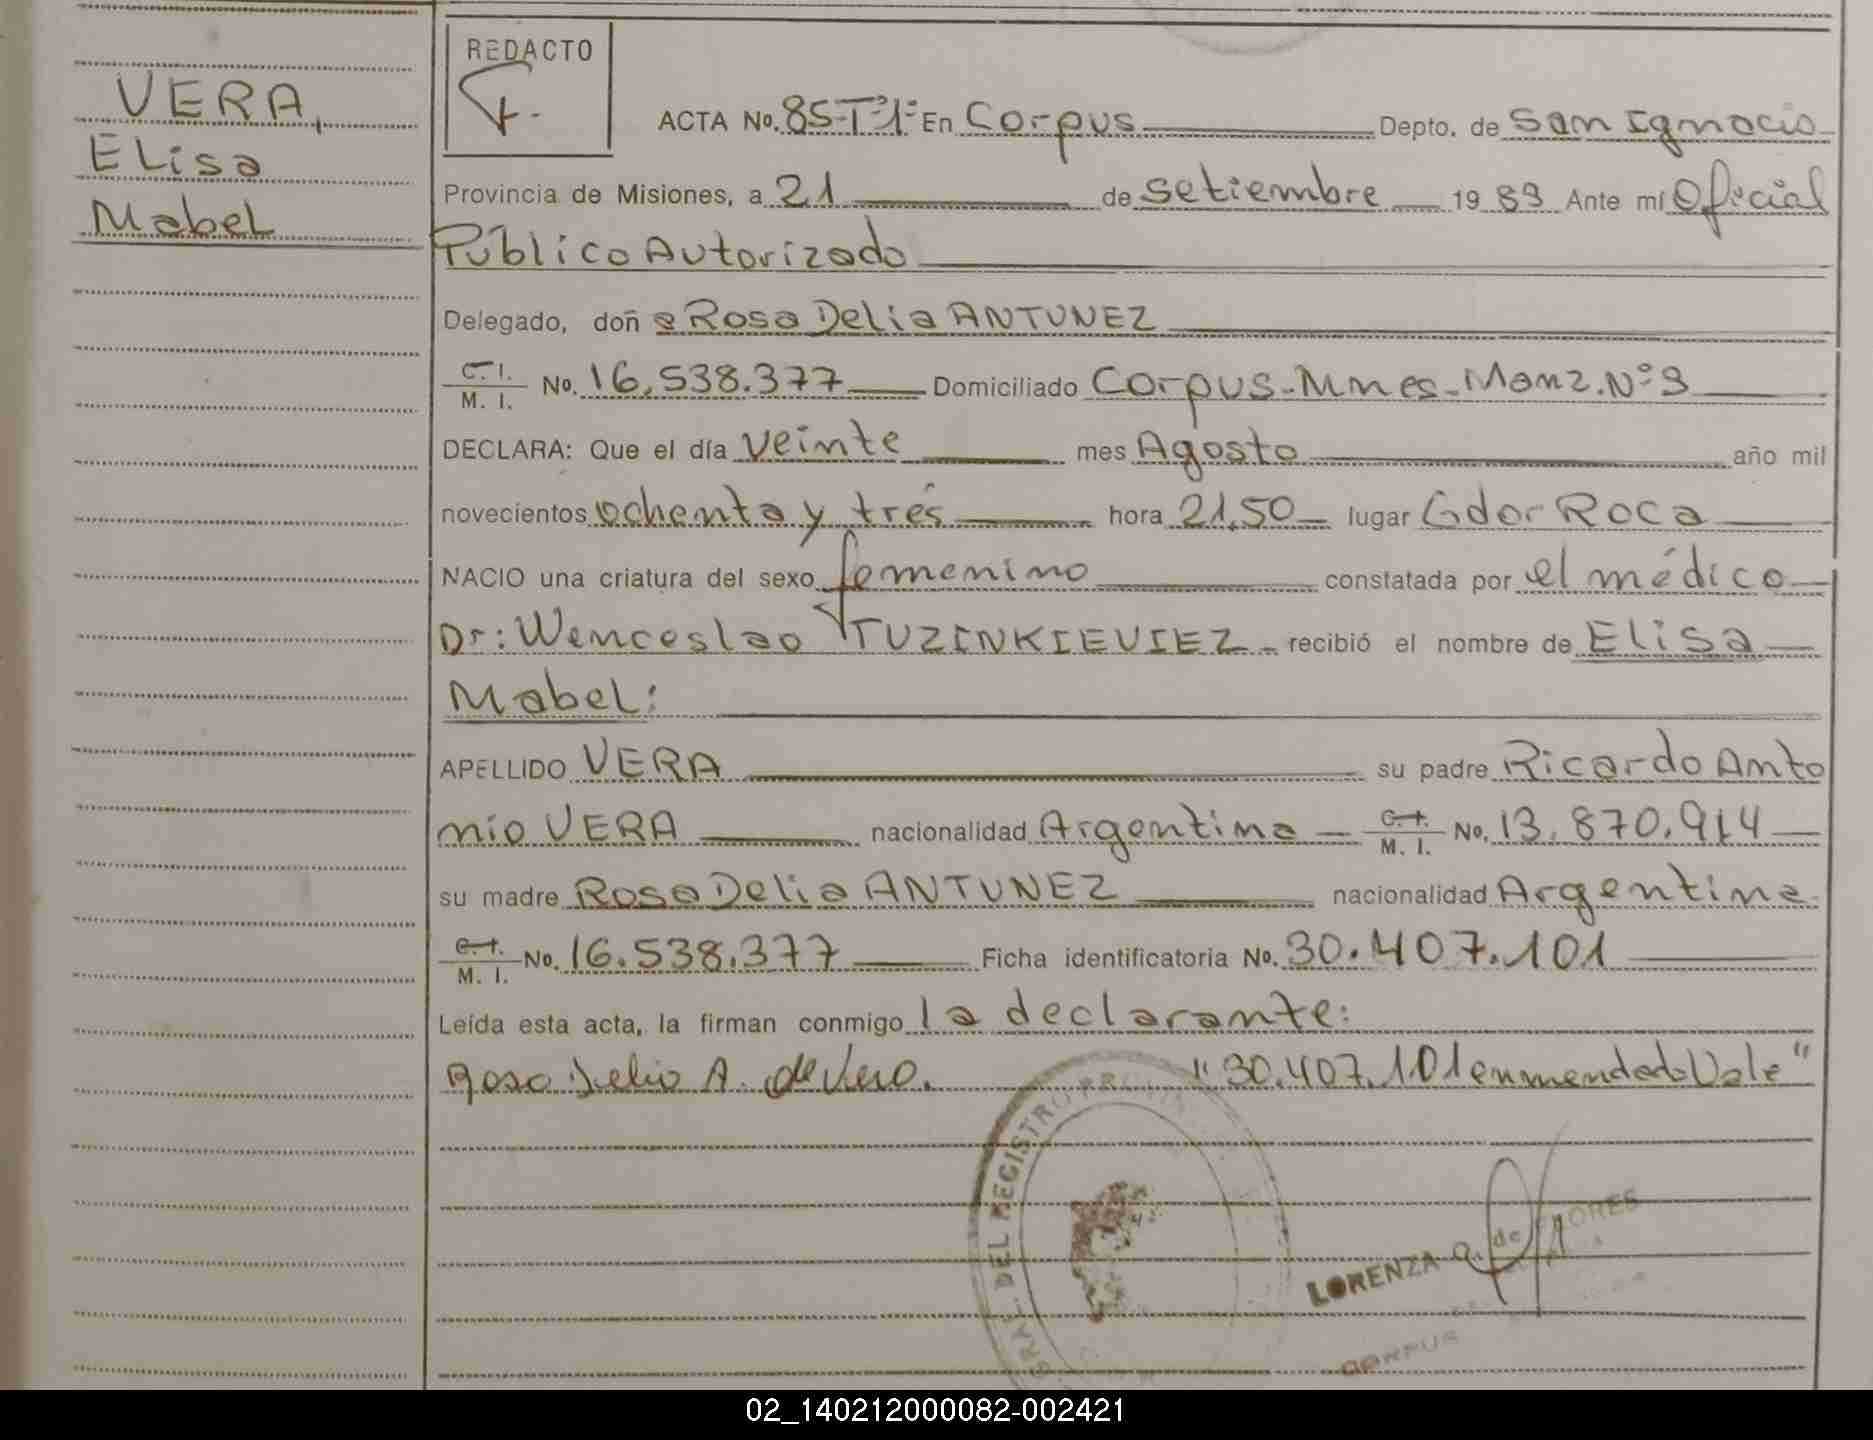 VERA,
Elisa
Mabel
REDACTO
ACTA No. 85-Tº1º En Corpus Depto. de San Ignacio
Provincia de Misiones, a 21 de setiembre 19 83 Ante mí Oficial
Público Autorizado
Delegado, doñ a Rosa Delia ANTUNEZ
C. I.
M. I. No. 16.538.377 Domiciliado Corpus-Mnes-Manz.Nº3
DECLARA: Que el día veinte mes Agosto año mil
novecientos ochenta y trés hora 21,50 lugar Gdor Roca
NACIO una criatura del sexo femenino constatada por el médico
Dr: Wenceslao TUZINKIEVIEZ recibió el nombre de Elisa
Mabel:
APELLIDO VERA su padre Ricardo Anto
nio VERA nacionalidad Argentina C. I.
M. I. No. 13.870.914
su madre Rosa Delia ANTUNEZ nacionalidad Argentina
C. I.
M. I. No. 16.538.377 Ficha identificatoria No. 30.407.101
Leída esta acta, la firman conmigo la declarante:
Rosa Delia A. de Vera. "30.407.101 enmendado Vale"
GRAL. DEL REGISTRO
LORENZA a. de FLORES
CORPUS
02_140212000082-002421